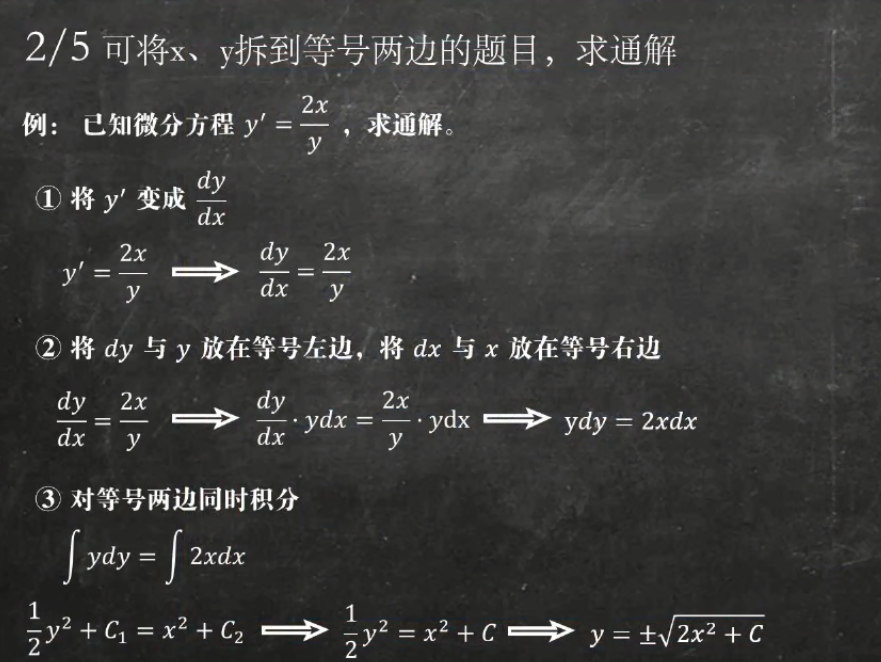 2/5 可将x、y拆到等号两边的题目，求通解
例： 已知微分方程 y′ = 2x/y ，求通解。
① 将 y′ 变成 dy/dx
y′ = 2x/y ⟹ dy/dx = 2x/y
② 将 dy 与 y 放在等号左边，将 dx 与 x 放在等号右边
dy/dx = 2x/y ⟹ dy/dx · ydx = 2x/y · ydx ⟹ ydy = 2xdx
③ 对等号两边同时积分
∫ ydy = ∫ 2xdx
1/2 y² + C₁ = x² + C₂ ⟹ 1/2 y² = x² + C ⟹ y = ±√(2x² + C)